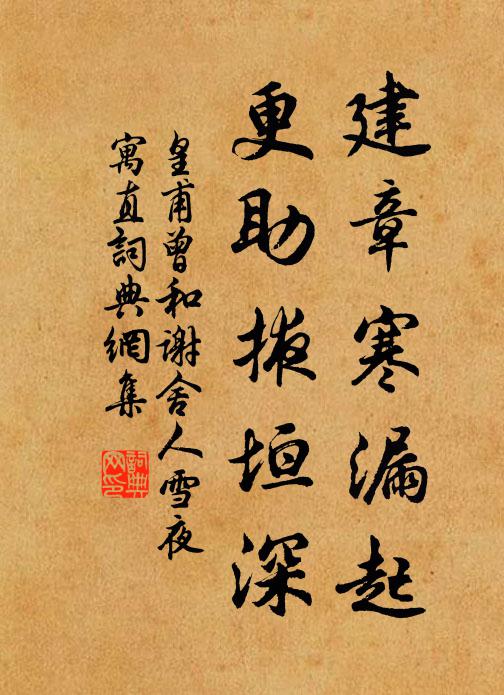 建章寒漏起
更助掖垣深
皇甫曾和謝舍人雪夜
寓直詞典網集
詞典
网印